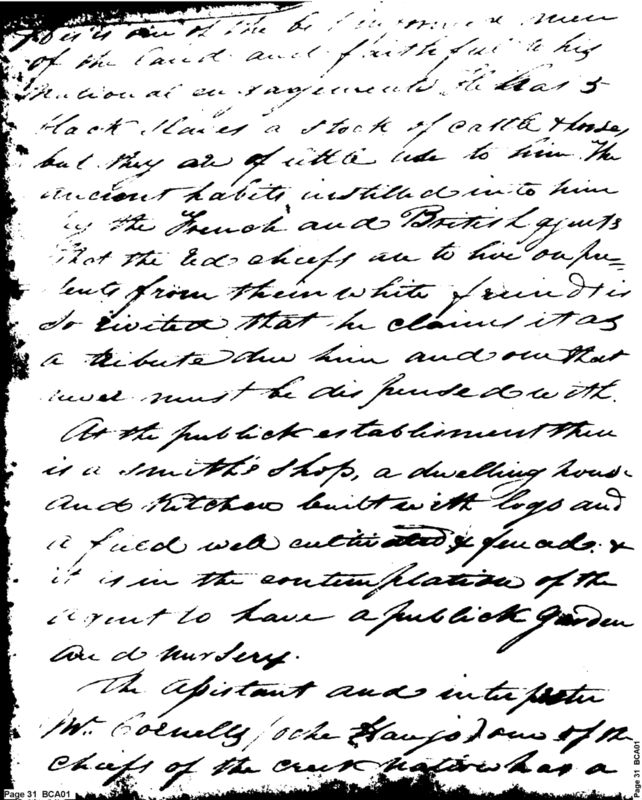 is one of the best informed men
of the land and faithful to his
national engagements. He has 5
black slaves a stock of cattle & horses
but they are of little use to him. The
ancient habits instilled in to him
by the French and British agents
that the red chiefs are to live on pre-
sents from their white friends is
so rivited that he claims it as
a tribute due him and one that
never must be dispensed with.
At the publick establisment there
is a smith's shop, a dwelling house
and kitchen built with logs and
a field well cultivated & fenced. &
it is in the contemplation of the
agent to have a publick garden
and nursery.
The Assistant and interpreter
Mr. Cornells (oche Haujo) one of the
chiefs of the creek nation has a
Page 31 BCA01
Page 31 BCA01